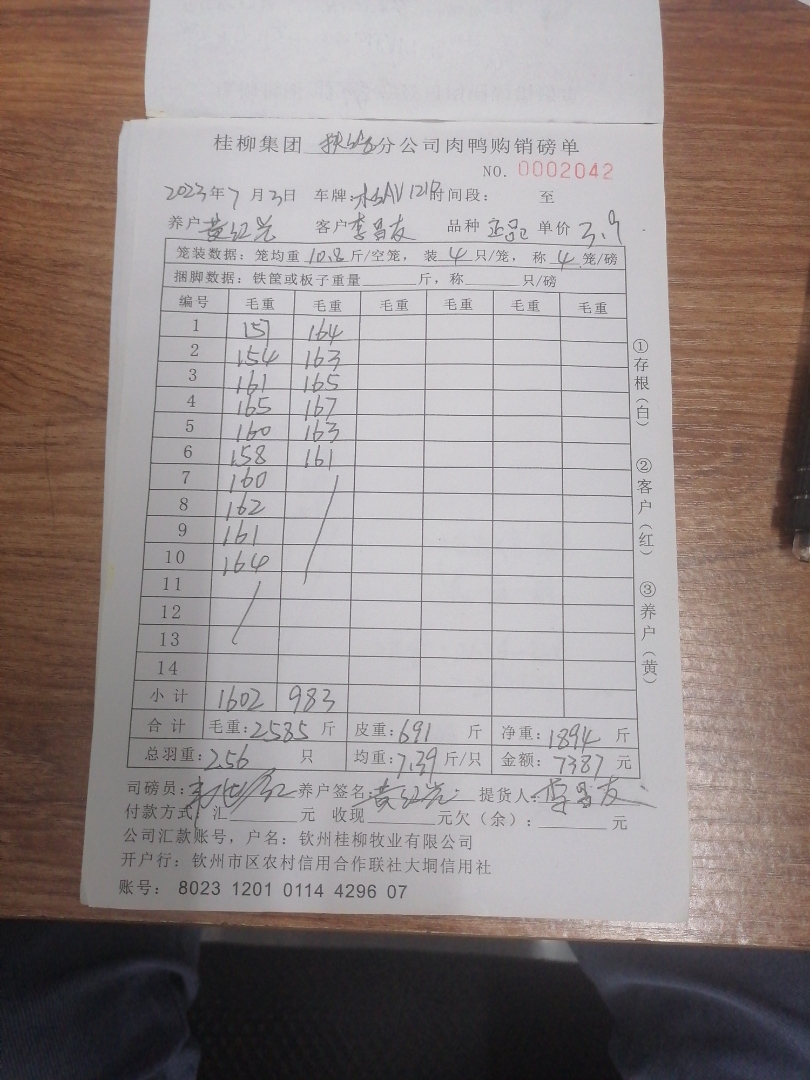 桂柳集团 分公司肉鸭购销磅单
NO. 0002042
2023年7月3日 车牌: 时间段: 至
养户 黄红兴 客户 李昌友 品种 正品 单价 3.9
笼装数据: 笼均重 10.8 斤/空笼, 装 4 只/笼, 称 4 笼/磅
捆脚数据: 铁筐或板子重量______斤, 称______只/磅
编号 毛重 毛重 毛重 毛重 毛重 毛重
1 157 164
2 154 163
3 161 165
4 165 167
5 160 163
6 158 161
7 160
8 162
9 161
10 164
11
12
13
14
小计 1602 983
合计 毛重: 2585 斤 皮重: 691 斤 净重: 1894 斤
总羽重: 256 只 均重: 7.39 斤/只 金额: 7387 元
司磅员: 养户签名: 黄红兴 提货人: 李昌友
付款方式: 汇______元 收现______元欠(余): ______元
公司汇款账号, 户名: 钦州桂柳牧业有限公司
开户行: 钦州市区农村信用合作联社大垌信用社
账号: 8023 1201 0114 4296 07
①存根(白)
②客户(红)
③养户(黄)